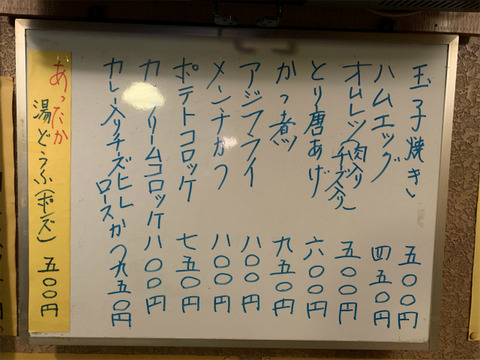 玉子焼き 五〇〇円
ハムエッグ 四五〇円
オムレツ(肉入り チーズ入り) 五〇〇円
とり唐あげ 六〇〇円
かつ煮 九五〇円
アジフライ 八〇〇円
メンチかつ 八〇〇円
ポテトコロッケ 七五〇円
カ リームコロッケ 八〇〇円
カレー入りチーズヒレ
ロースかつ 九五〇円
あったか
湯どうふ(ポンズ) 五〇〇円